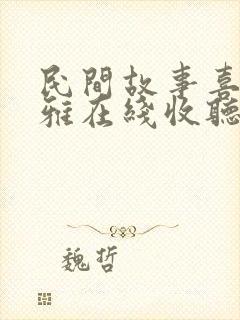 民間故事喜
雅在綫收聽
魏哲